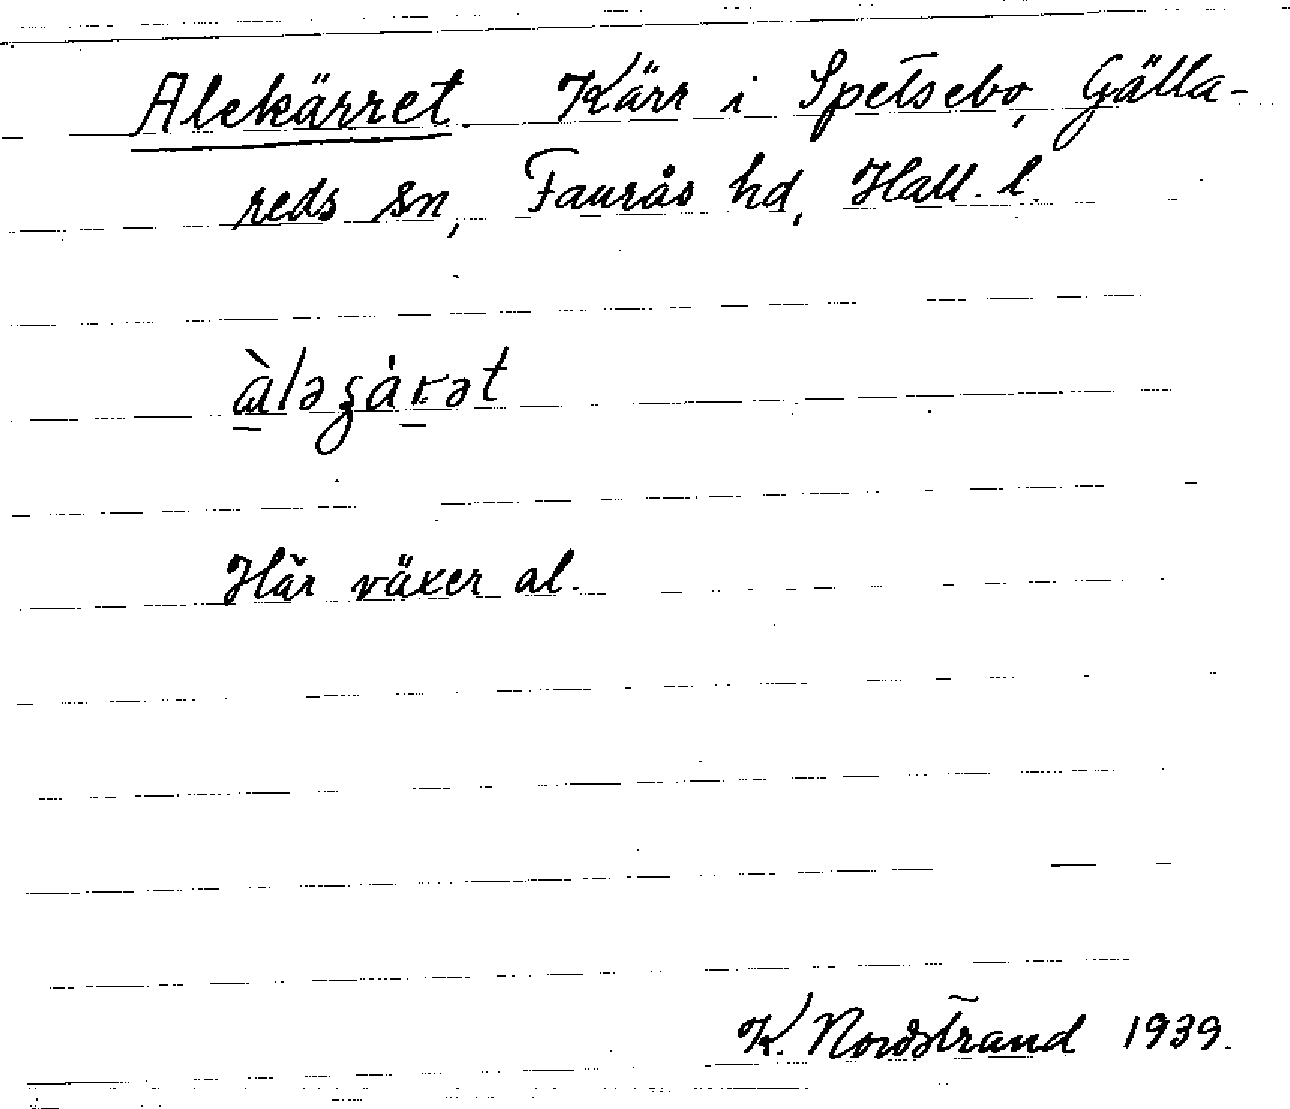 Alekärret. Kärr i Spetsebo, Gälla-
reds sn, Faurås hd, Hall. l.
Här växer al.
K. Nordstrand 1939.